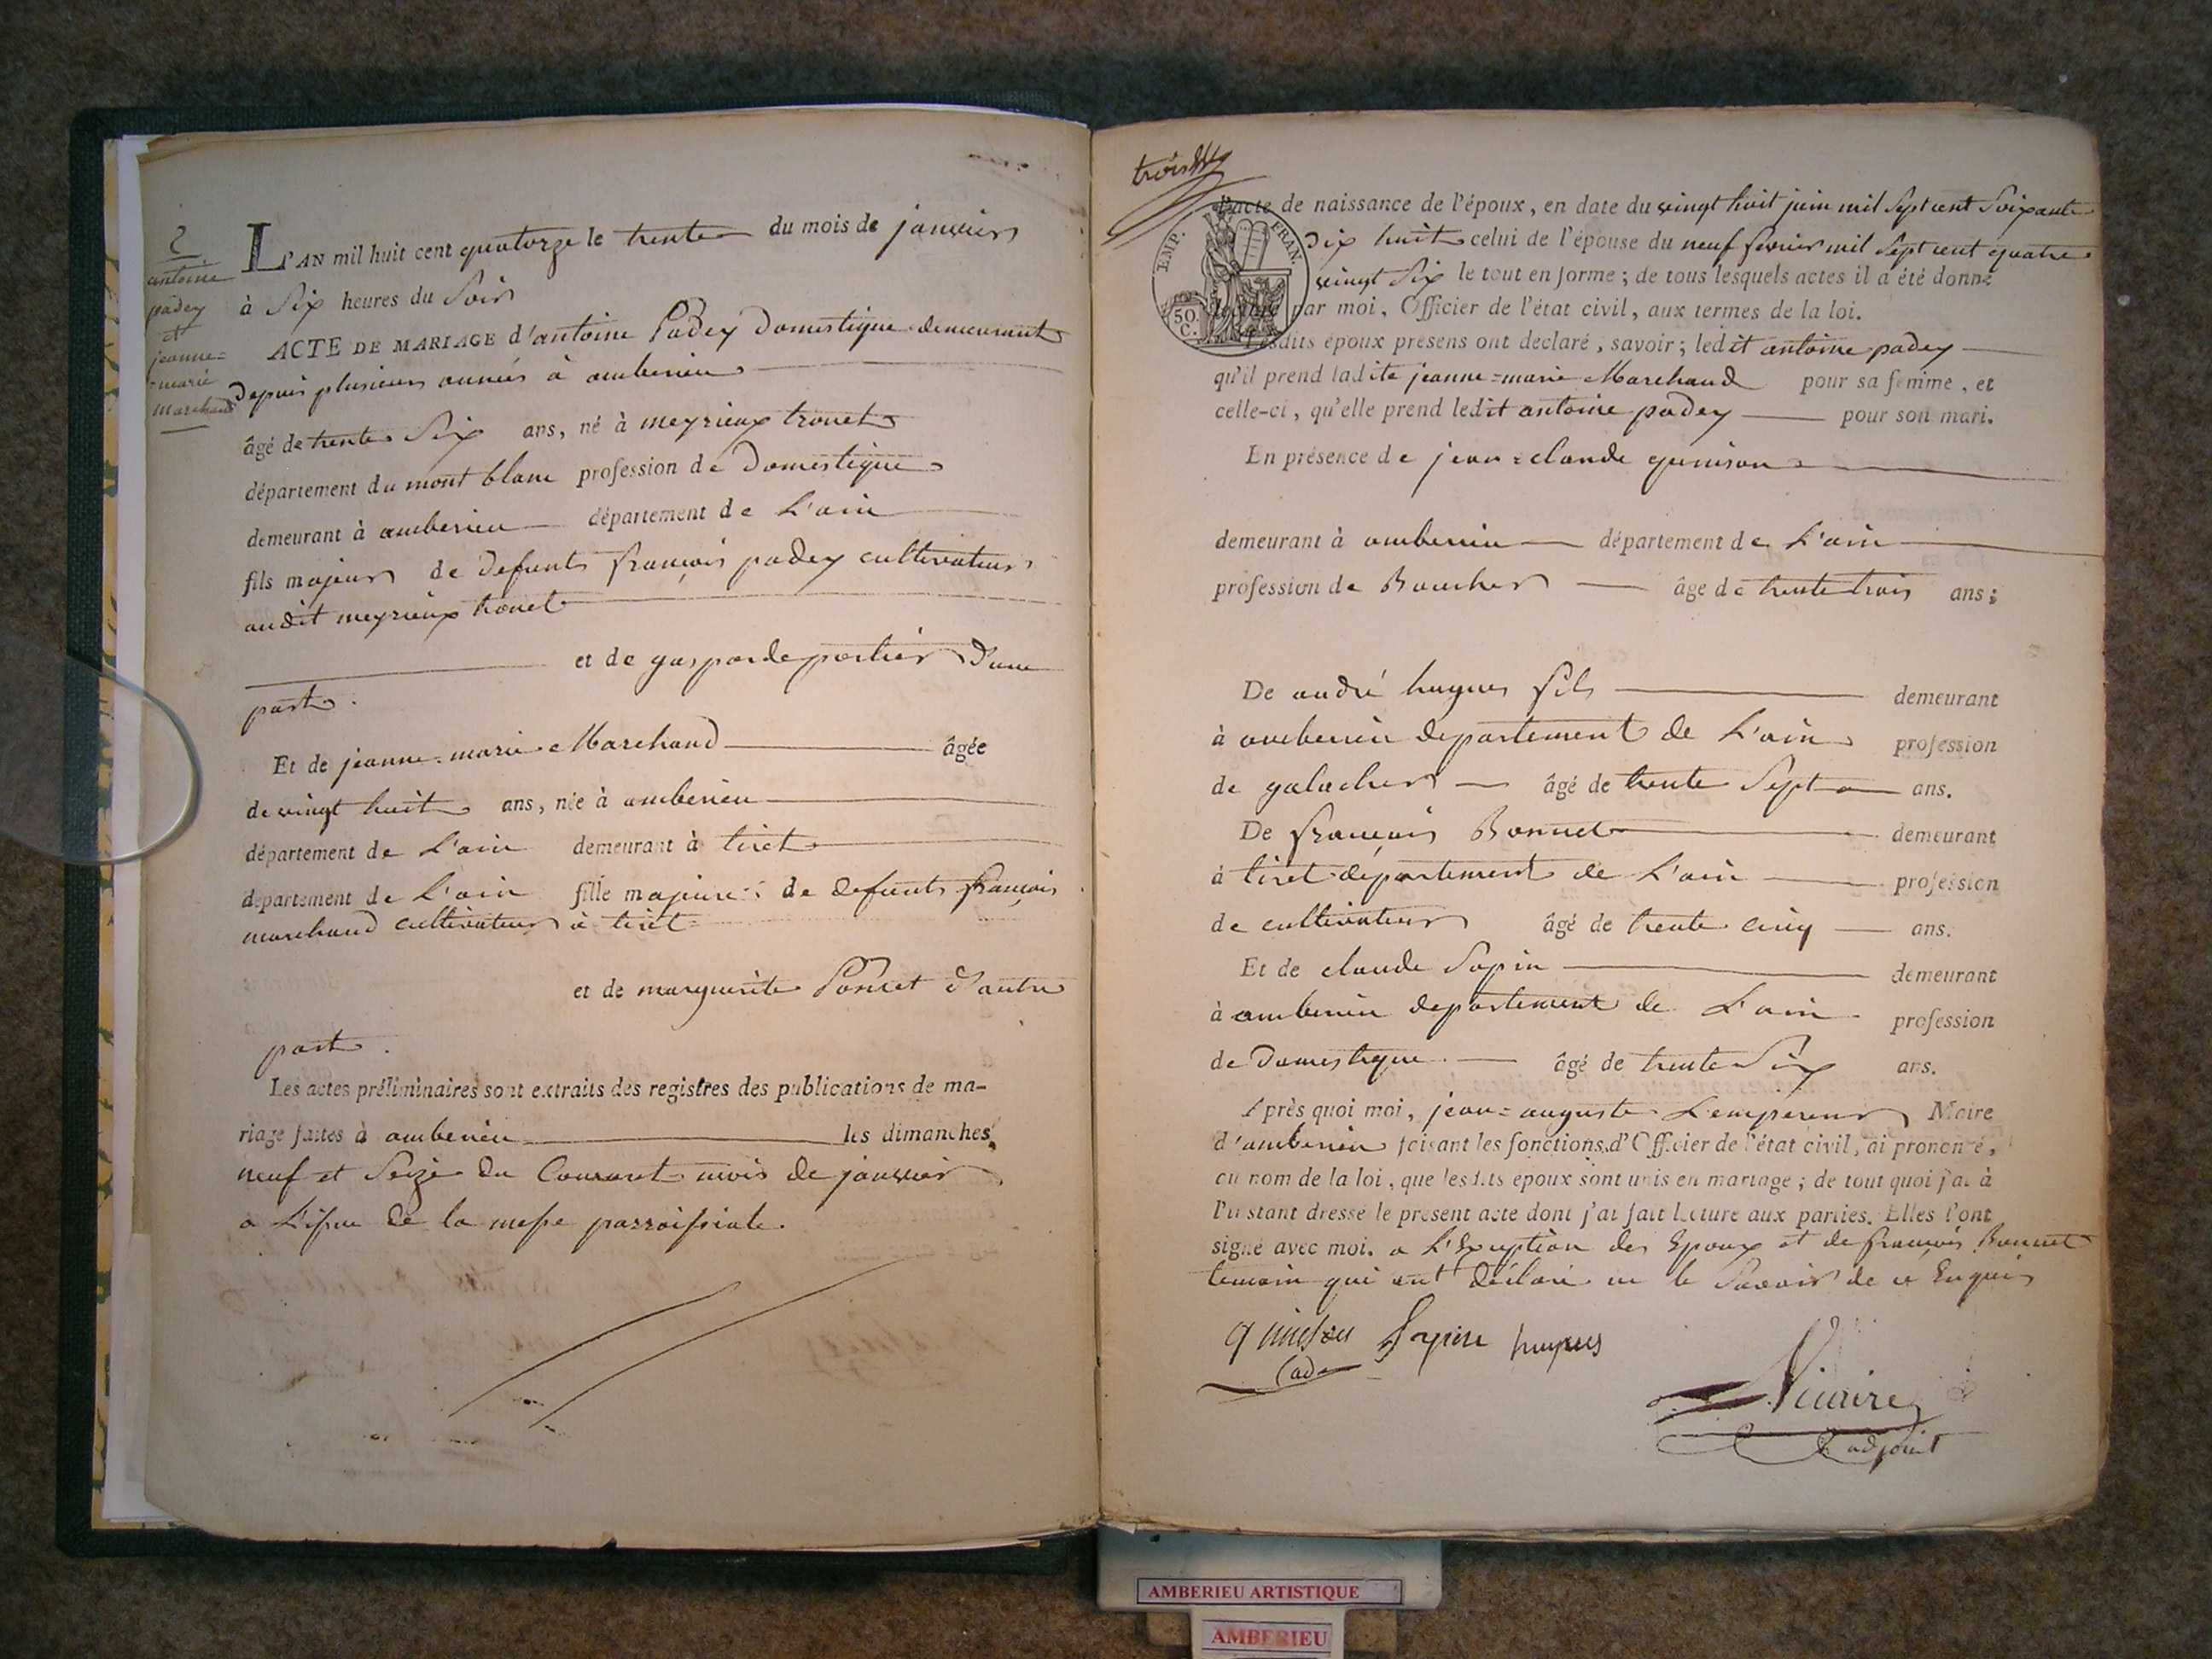 2
antoine
padey
et
jeanne=
=marie
marchand
L'AN mil huit cent quatorze le trente du mois de janvier
à Six heures du Soir
ACTE DE MARIAGE d'antoine Padey Domestique demeurant
Depuis plusieurs années à amberieu
âgé de trente Six ans, né à meyrieux trouet
département du mont blanc profession de Domestique
demeurant à amberieu département de L'ain
fils majeur de defunts françois padey cultivateur
audit meyrieux trouet
et de gasparde portier D'une
part.
Et de jeanne=marie Marchand âgée
de vingt huit ans, née à amberieu
département de L'ain demeurant à tiret
département de L'ain fille majeure de defunts françois
marchand cultivateur à tiret
et de marguerite Poncet d'autre
part.
Les actes préliminaires sont extraits des registres des publications de ma-
riage faites à amberieu les dimanches
neuf et Seize du Courant mois de janvier
a L'issue de la messe parroissiale.
trois
L'acte de naissance de l'époux, en date du vingt huit juin mil Sept cent Soixante
Dix huit celui de l'épouse du neuf fevrier mil Sept cent quatre
vingt Six le tout en forme ; de tous lesquels actes il a été donné
lecture par moi, Officier de l'état civil, aux termes de la loi.
EMP. FRAN.
50. C.
Lesdits époux présens ont déclaré, savoir ; ledit antoine padey
qu'il prend ladite jeanne=marie Marchand pour sa femme, et
celle-ci, qu'elle prend ledit antoine padey pour son mari.
En présence de jean=claude quinson
demeurant à amberieu département de L'ain
profession de Boucher âgé de trente trois ans ;
De andré hugues fils demeurant
à amberieu departement de L'ain profession
de galocher âgé de trente Sept ans.
De françois Bonnet demeurant
à tiret département de L'ain profession
de cultivateur âgé de trente cinq ans.
Et de claude Sapin demeurant
à amberieu departement de L'ain profession
de Domestique âgé de trente Six ans.
Après quoi moi, jean=auguste L'empereur Maire
d'amberieu faisant les fonctions d'Officier de l'état civil, ai prononcé,
au nom de la loi, que lesdits époux sont unis en mariage ; de tout quoi j'ai à
l'instant dressé le présent acte dont j'ai fait lecture aux parties. Elles l'ont
signé avec moi. a L'Exception des Epoux et de françois Bonnet
temoin qui ont déclaré ne le Savoir de ce Enquis
quinson Sapin hugues
Cad
Vicaire
adjoint
AMBERIEU ARTISTIQUE
AMBERIEU